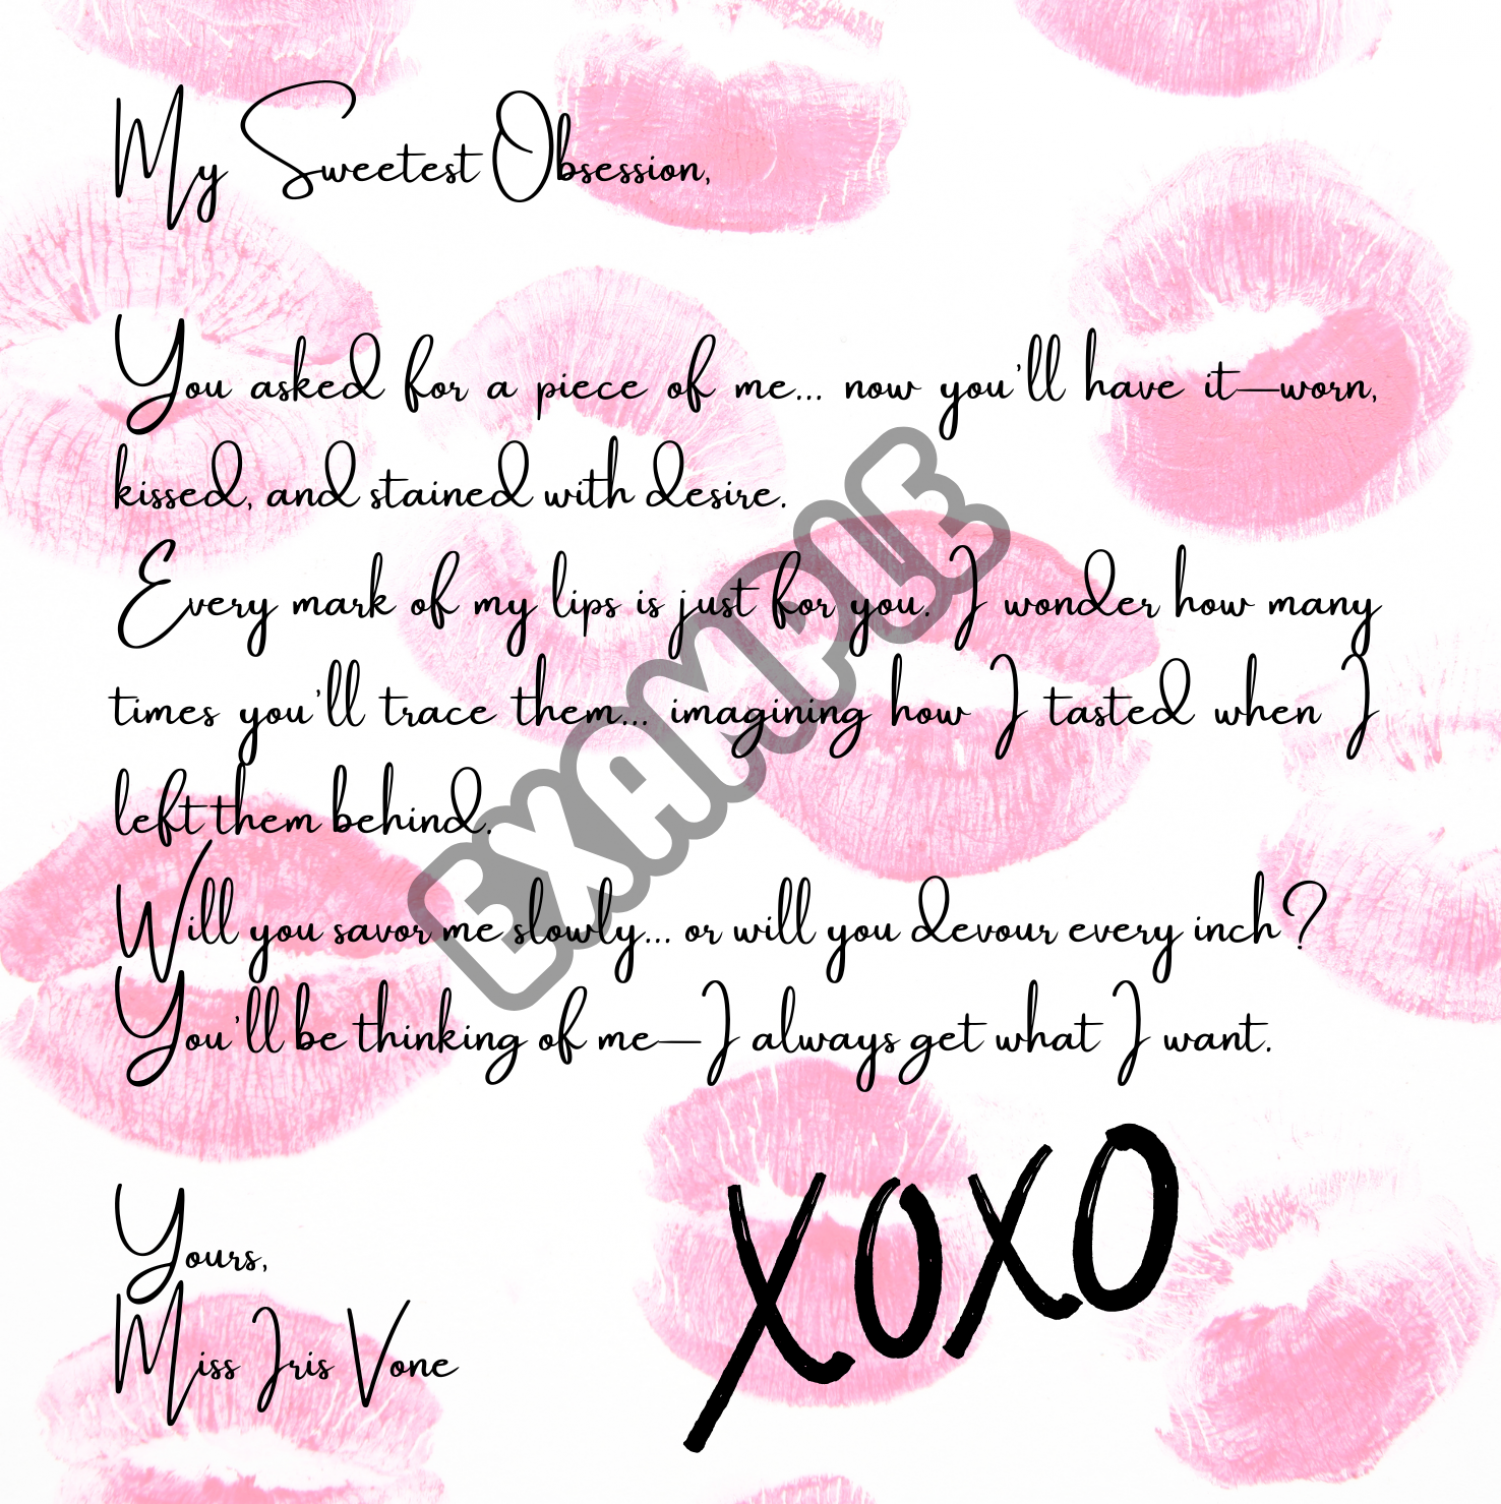 My Sweetest Obsession,
You asked for a piece of me... now you'll have it—worn,
kissed, and stained with desire.
Every mark of my lips is just for you. I wonder how many
times you'll trace them... imagining how I tasted when I
left them behind.
Will you savor me slowly... or will you devour every inch?
You'll be thinking of me—I always get what I want.
Yours,
Miss Iris Vone
XOXO
EXAMPLE